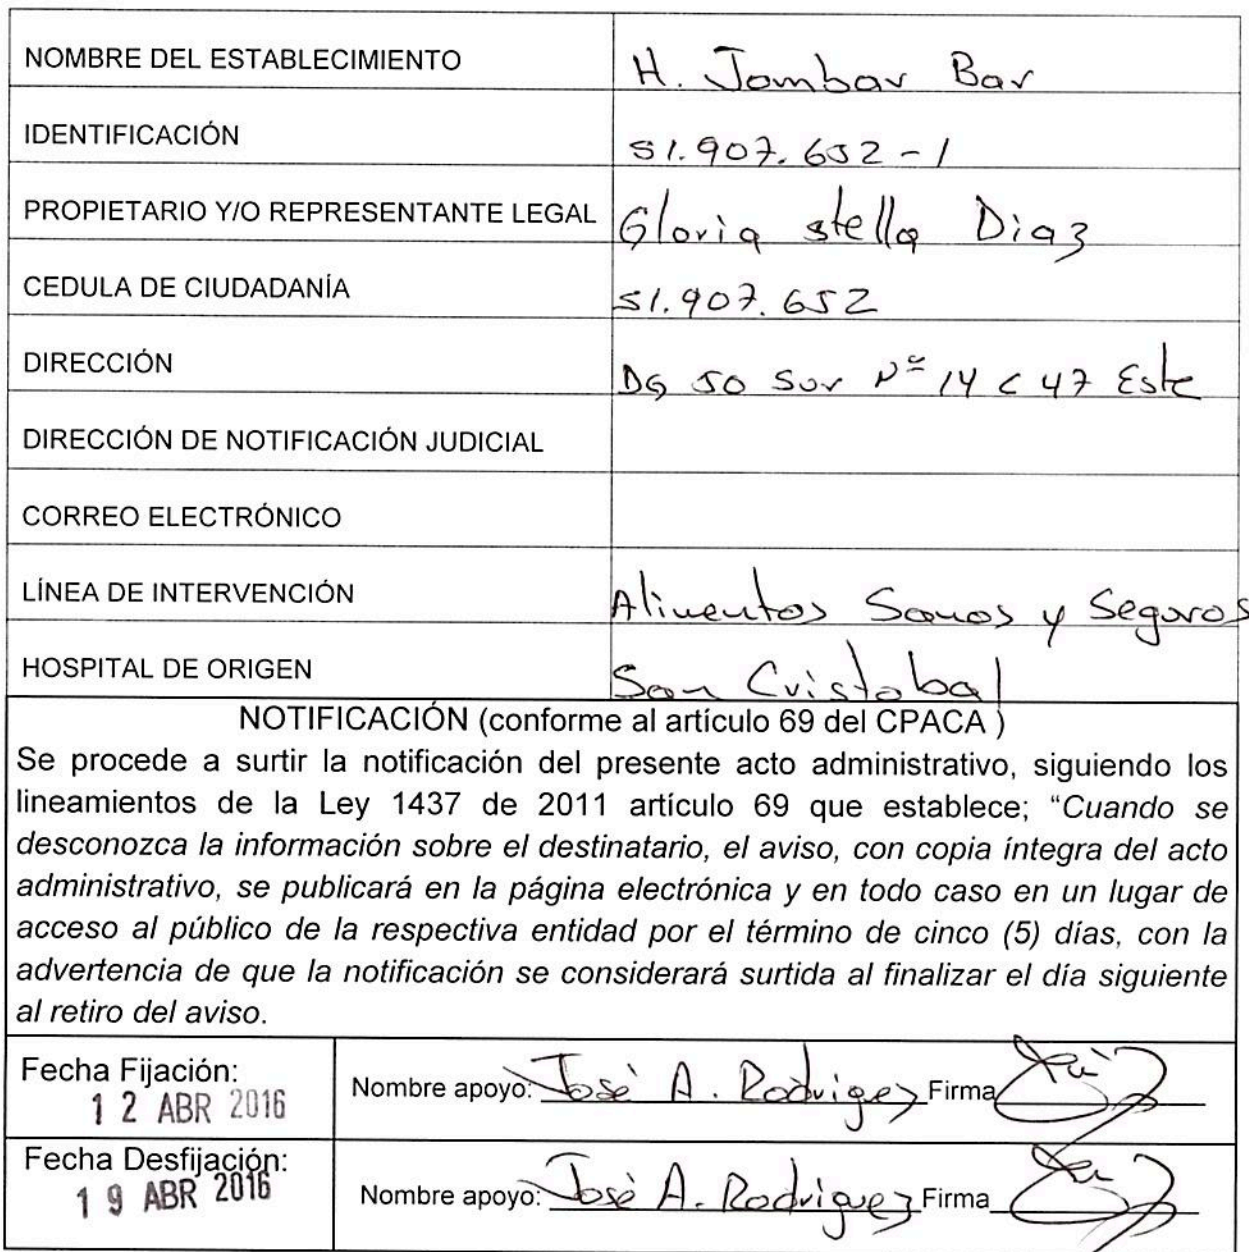 NOMBRE DEL ESTABLECIMIENTO H. Jombar Bar
IDENTIFICACIÓN 51.907.652-1
PROPIETARIO Y/O REPRESENTANTE LEGAL Gloria stella Diaz
CEDULA DE CIUDADANÍA 51.907.652
DIRECCIÓN DG 50 Sur Nº 14 C 47 Este
DIRECCIÓN DE NOTIFICACIÓN JUDICIAL
CORREO ELECTRÓNICO
LÍNEA DE INTERVENCIÓN Alimentos Sanos y Seguros
HOSPITAL DE ORIGEN San Cristobal
NOTIFICACIÓN (conforme al artículo 69 del CPACA )
Se procede a surtir la notificación del presente acto administrativo, siguiendo los
lineamientos de la Ley 1437 de 2011 artículo 69 que establece; “Cuando se
desconozca la información sobre el destinatario, el aviso, con copia íntegra del acto
administrativo, se publicará en la página electrónica y en todo caso en un lugar de
acceso al público de la respectiva entidad por el término de cinco (5) días, con la
advertencia de que la notificación se considerará surtida al finalizar el día siguiente
al retiro del aviso.
Fecha Fijación:
12 ABR 2016
Nombre apoyo: José A. Rodriguez Firma
Fecha Desfijación:
19 ABR 2016
Nombre apoyo: José A. Rodriguez Firma